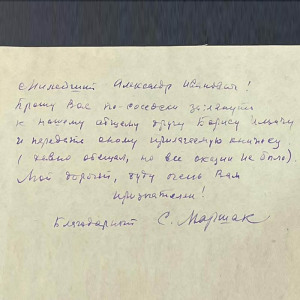 Милейший Александр Иванович!
Прошу Вас по-соседски заглянуть
к нашему общему другу Борису Ильичу
и передать ему прилагаемую книжку
(давно обещал, но все оказии не было).
Мой дорогой, буду очень Вам
признателен!
Благодарный С. Маршак